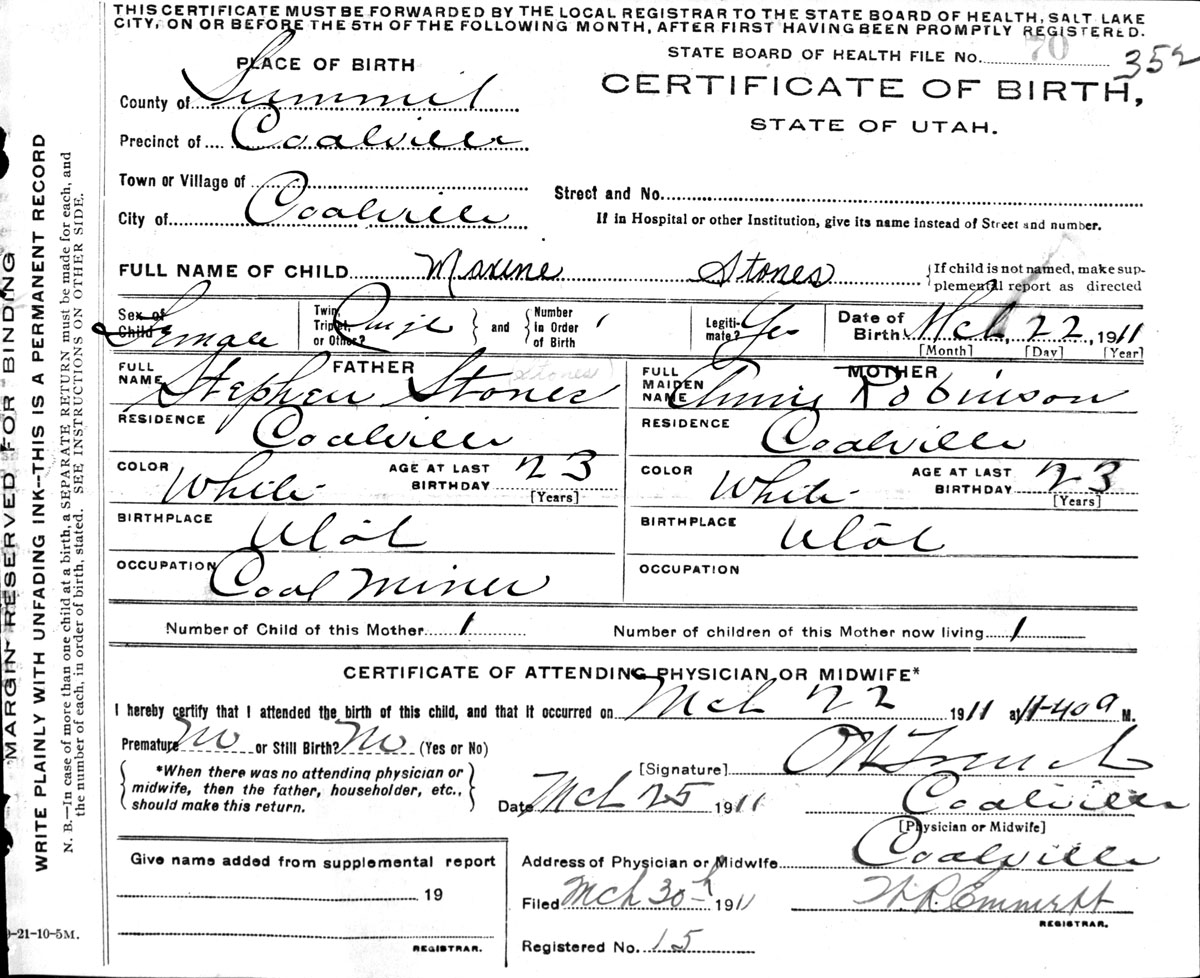 THIS CERTIFICATE MUST BE FORWARDED BY THE LOCAL REGISTRAR TO THE STATE BOARD OF HEALTH, SALT LAKE
CITY, ON OR BEFORE THE 5TH OF THE FOLLOWING MONTH, AFTER FIRST HAVING BEEN PROMPTLY REGISTERED.
STATE BOARD OF HEALTH FILE NO. 70 352
CERTIFICATE OF BIRTH,
STATE OF UTAH.
PLACE OF BIRTH
County of Summit
Precinct of Coalville
Town or Village of
City of Coalville
Street and No.
If in Hospital or other Institution, give its name instead of Street and number.
FULL NAME OF CHILD Maxine Stones
{If child is not named, make sup-
plemental report as directed
Sex of Child Female
Twin, Triplet, or Other?
and
Number in Order of Birth 1
Legiti-mate? Yes
Date of Birth Mch 22, 1911
[Month] [Day] [Year]
FATHER
FULL NAME Stephen Stones (Stones)
RESIDENCE Coalville
COLOR White AGE AT LAST BIRTHDAY 23 [Years]
BIRTHPLACE Utah
OCCUPATION Coal Miner
MOTHER
FULL MAIDEN NAME Annie Robinson
RESIDENCE Coalville
COLOR White AGE AT LAST BIRTHDAY 23 [Years]
BIRTHPLACE Utah
OCCUPATION
Number of Child of this Mother 1 Number of children of this Mother now living 1
CERTIFICATE OF ATTENDING PHYSICIAN OR MIDWIFE*
I hereby certify that I attended the birth of this child, and that it occurred on Mch 22 1911 at 11-40 a M.
Premature No or Still Birth? No (Yes or No)
*When there was no attending physician or
midwife, then the father, householder, etc.,
should make this return.
[Signature]
Date Mch 25 1911 Coalville
[Physician or Midwife]
Address of Physician or Midwife Coalville
Filed Mch 30th 1911 W.R. Emmett
REGISTRAR.
Registered No. 15
Give name added from supplemental report
19
REGISTRAR.
-21-10-5M.
MARGIN RESERVED FOR BINDING
WRITE PLAINLY WITH UNFADING INK--THIS IS A PERMANENT RECORD
N. B.--In case of more than one child at a birth, a SEPARATE RETURN must be made for each, and
the number of each, in order of birth, stated. SEE INSTRUCTIONS ON OTHER SIDE.